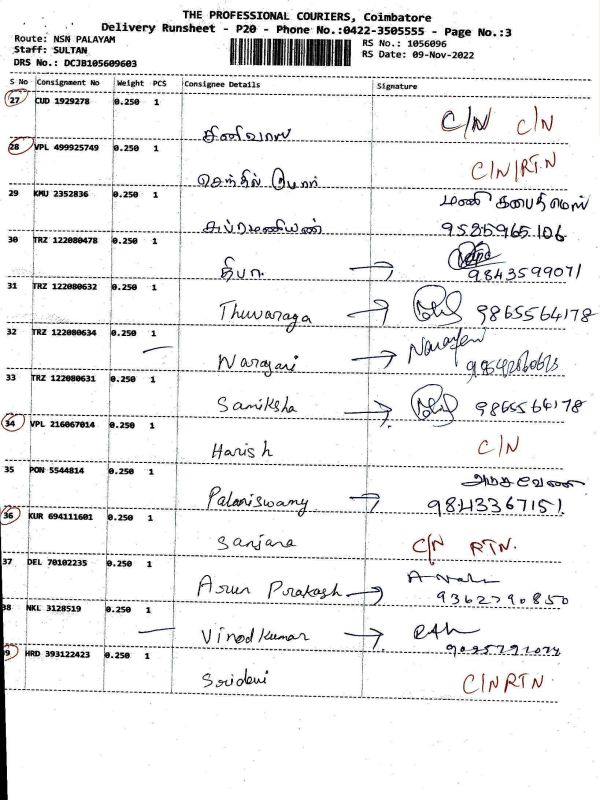 THE PROFESSIONAL COURIERS, Coimbatore
Delivery Runsheet - P20 - Phone No.:0422-3505555 - Page No.:3
Route: NSN PALAYAM RS No.: 1056096
Staff: SULTAN RS Date: 09-Nov-2022
DRS No.: DCJB105609603
S No Consignment No Weight PCS Consignee Details Signature
27 CUD 1929278 0.250 1 சீனிவாஸ் C/N C/N
28 VPL 499925749 0.250 1 செந்தில் குமார் C/N/RTN
29 KMU 2352836 0.250 1 சுப்ரமணியன் மணி
9525965106
30 TRZ 122080478 0.250 1 தீபா
9843599071
31 TRZ 122080632 0.250 1 Thuvaraga 9865564178
32 TRZ 122080634 0.250 1 Narayani Narayani
33 TRZ 122080631 0.250 1 Samiksha 9865564178
34 VPL 216067014 0.250 1 Harish C/N
35 PON 5544814 0.250 1 Palaniswamy 9843367151
36 KUR 694111601 0.250 1 Sanjana C/N RTN.
37 DEL 70102235 0.250 1 Arun Prakash
9362790850
38 NKL 3128519 0.250 1 Vinod kumar
39 HRD 393122423 0.250 1 Sridevi C/N RTN